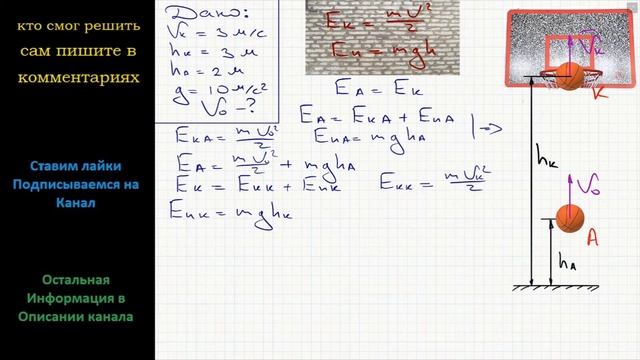 кто смог решить
сам пишите в
комментариях
Ставим лайки
Подписываемся на
Канал
Остальная
Информация в
Описании канала
Дано:
Vк = 3 м/с
hк = 3 м
hA = 2 м
g = 10 м/с²
V₀ - ?
Eк = mV²/2
Eп = mgh
EA = Eк
EA = EкA + EпA
EкA = mV₀²/2
EпA = mghA
|=>
EA = mV₀²/2 + mghA
Eк = Eкк + Eпк
Eкк = mVк²/2
Eпк = mghк
Vк
К
hк
V₀
A
hA